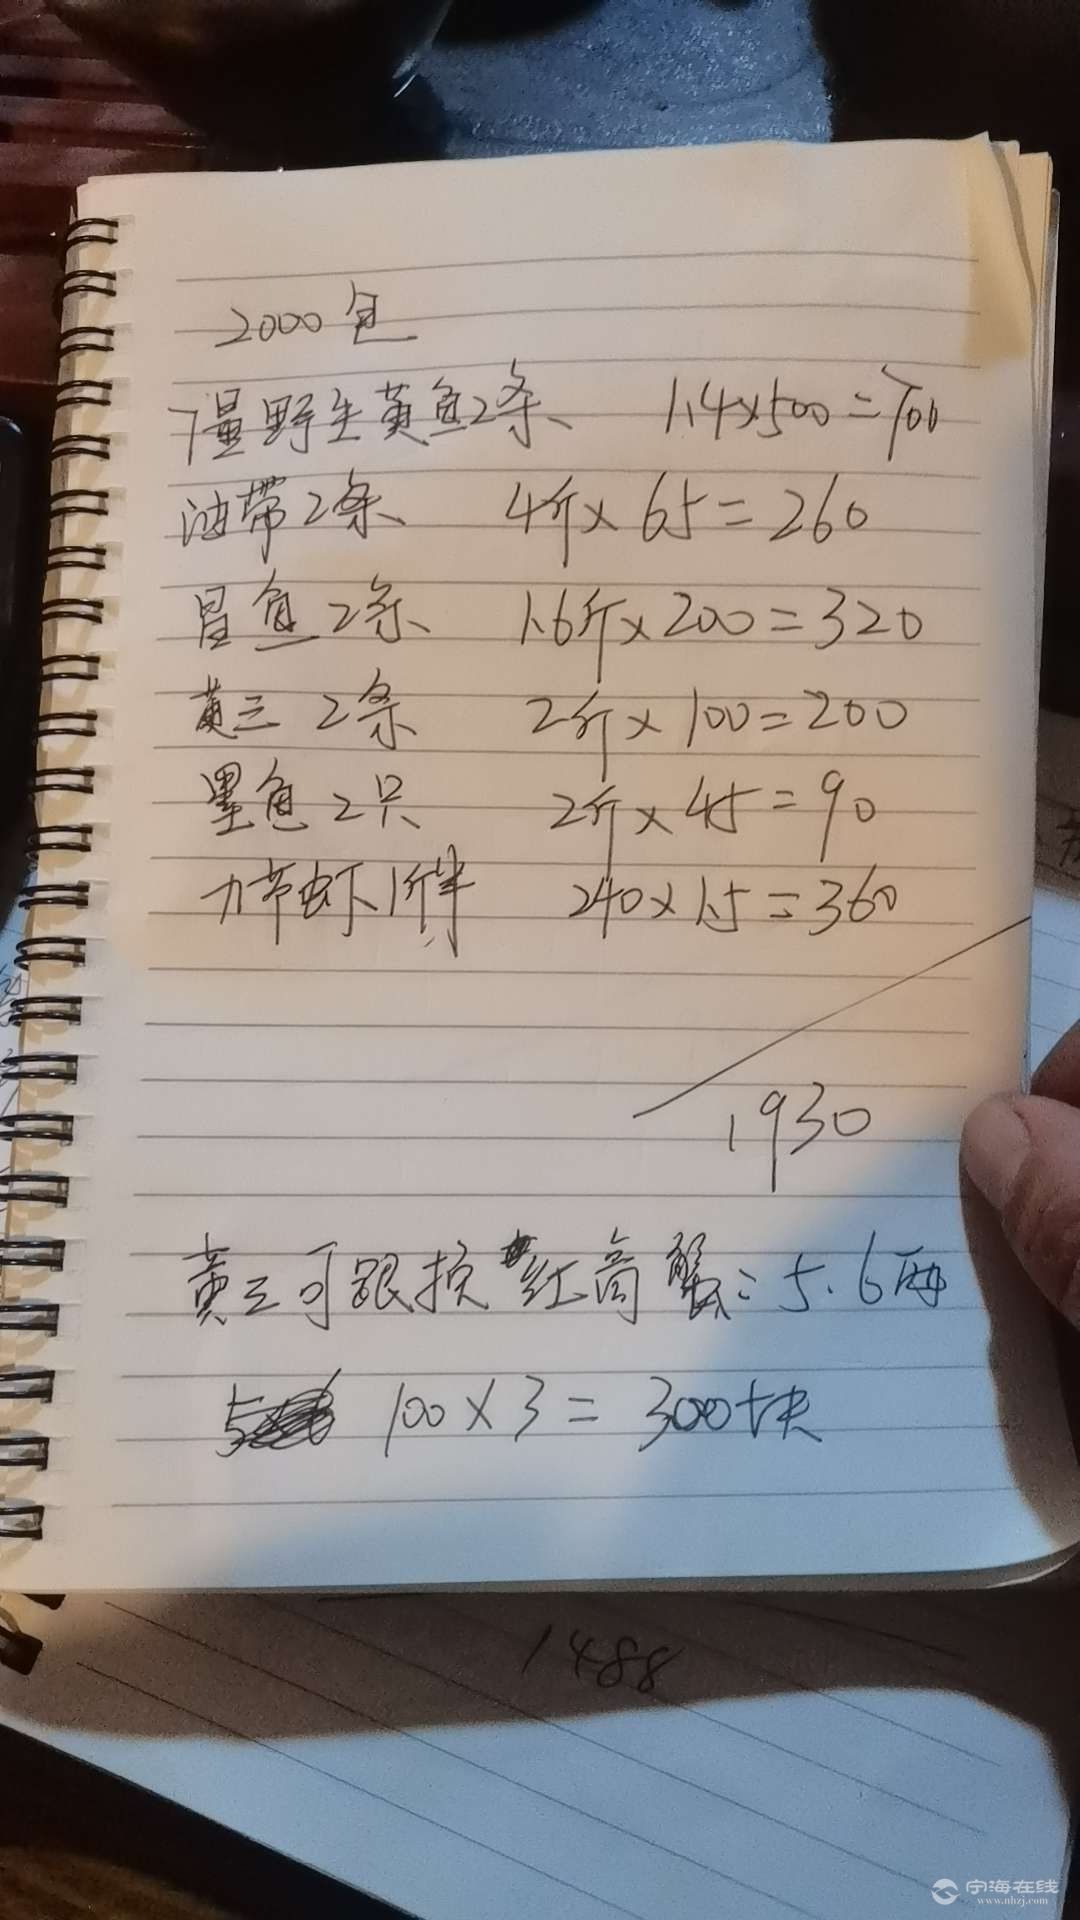 2000包
7量野生黄鱼2条 1.4×500=700
油带2条 4斤×65=260
昌鱼2条 1.6斤×200=320
黄三2条 2斤×100=200
墨鱼2只 2斤×45=90
力节虾1斤半 240×1.5=360
1930
黄三可跟换红高蟹:5.6两
100×3=300块
1488
宁海在线
www.nhzj.com